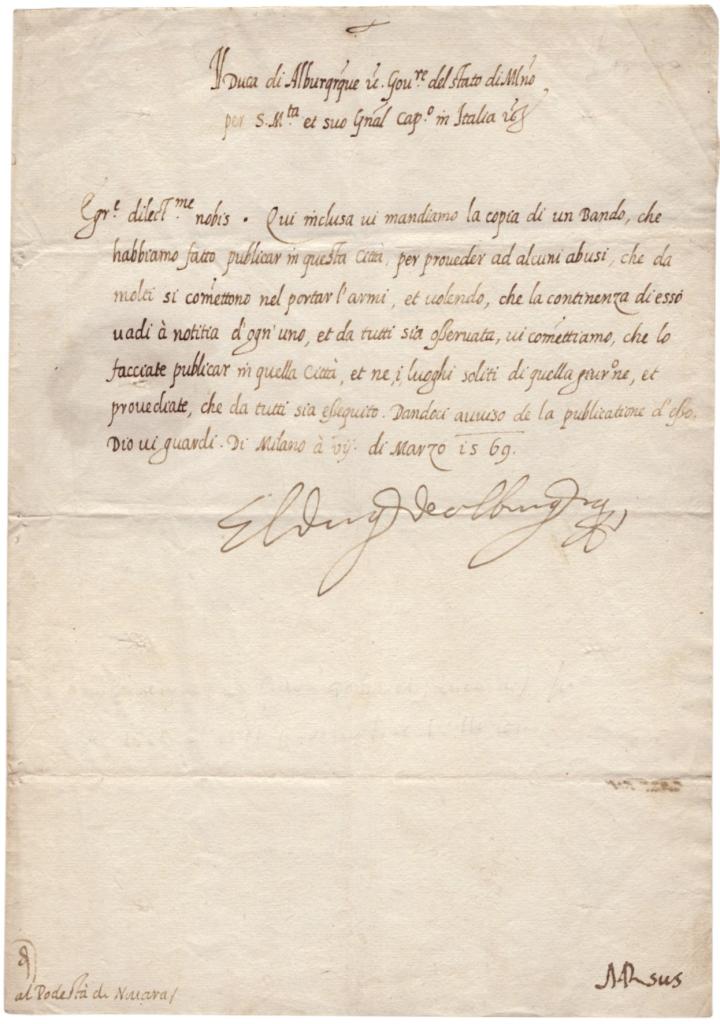 Il Duca di Alburqrque &c. Gou.re del stato di Mlno
per S. M.ta et suo Gnal Cap.o in Italia &c
Egr.e dilect.me nobis . Qui inclusa ui mandiamo la copia di un Bando, che
habbiamo fatto publicar in questa Città, per proueder ad alcuni abusi, che da
molti si comettono nel portar l'armi, et uolendo, che la continenza di esso
uadi à notitia d'ogn'uno, et da tutti sia osseruata, ui comettiamo, che lo
facciate publicar in quella Città, et ne, i, luoghi soliti di quella giur.ne, et
prouediate, che da tutti sia esseguito. Dandoci auuiso de la publicatione d'esso.
Dio ui guardi. Di Milano à vij. di Marzo 1569.
El duq de alburq
al Podestà di Nouara/